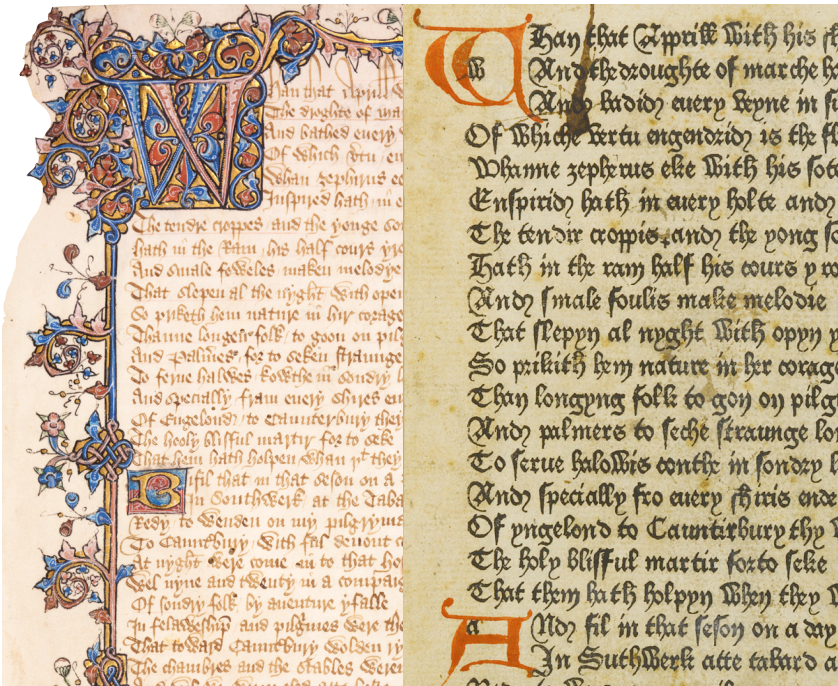 Whan that Aprill
The droghte of ma
And bathed euery
Of which v̄tu en
Whan zephirus ee
Inspired hath in e
The tendre croppes and the yonge so
hath in the Ram his half cours yr
And smale foweles maken melodye
That slepen al the nyght With open
So priketh hem nature in hir corage
Thanne longen folk to goon on pil
And Palmeres for to seken straunge
To ferne halwes kowthe in sondry l
And specially from euery shires en
Of Engelond to Caunterbury they
The hooly blisful martir for to seke
That hem hath holpen Whan þt they
Bifil that in that seson on a
In Southwerk at the Taba
Redy to Wenden on my pilgryma
To Caunt̄bury With ful deuout c
At nyght Were come in to that ho
Wel nyne and twenty in a compaig
Of sondry folk by auenture yfalle
In felaweship̄ and pilgrimes Were the
That toward Caunt̄bury Wolden ry
The chambres and the stables Weren
WHan that Apprill With his
And the droughte of marche h
And badid euery veyne in s
Of Whiche vertu engendrid is the f
Whanne zepherus eke With his sote
Enspirid hath in euery holte and
The tendir croppis and the yong s
Hath in the ram half his cours y ro
And smale foulis make melodie
That slepyn al nyght With opyn y
So prikith hem nature in her corag
Than longyng folk to gon on pilg
And palmers to seche straunge lo
To serue halowis couthe in sondry l
And specially fro euery shiris ende
Of yngelond to Cauntirbury thy
The holy blisful martir forto seke
That them hath holpyn When they W
ANd fil in that seson on a day
In SuthWerk atte tabard a